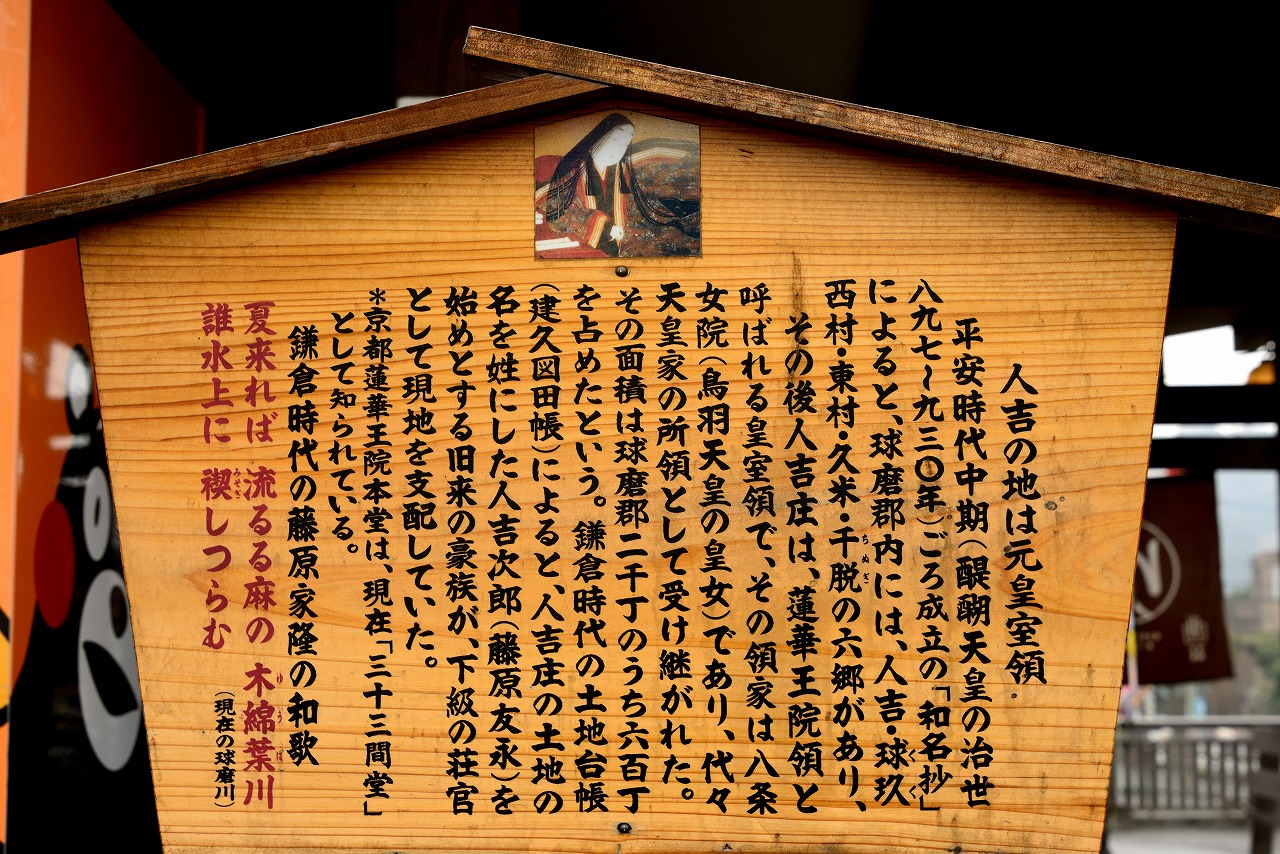 人吉の地は元皇室領
平安時代中期(醍醐天皇の治世
八九七~九三〇年)ごろ成立の「和名抄」
によると、球磨郡内には、人吉・球玖
西村・東村・久米・千脱の六郷があり、
その後人吉庄は、蓮華王院領と
呼ばれる皇室領で、その領家は八条
女院(鳥羽天皇の皇女)であり、代々
天皇家の所領として受け継がれた。
その面積は球磨郡二千丁のうち六百丁
を占めたという。鎌倉時代の土地台帳
(建久図田帳)によると、人吉庄の土地の
名を姓にした人吉次郎(藤原友永)を
始めとする旧来の豪族が、下級の荘官
として現地を支配していた。
*京都蓮華王院本堂は、現在「三十三間堂」
として知られている。
鎌倉時代の藤原家隆の和歌
夏来れば 流るる麻の 木綿葉川
誰水上に 禊しつらむ
(現在の球磨川)